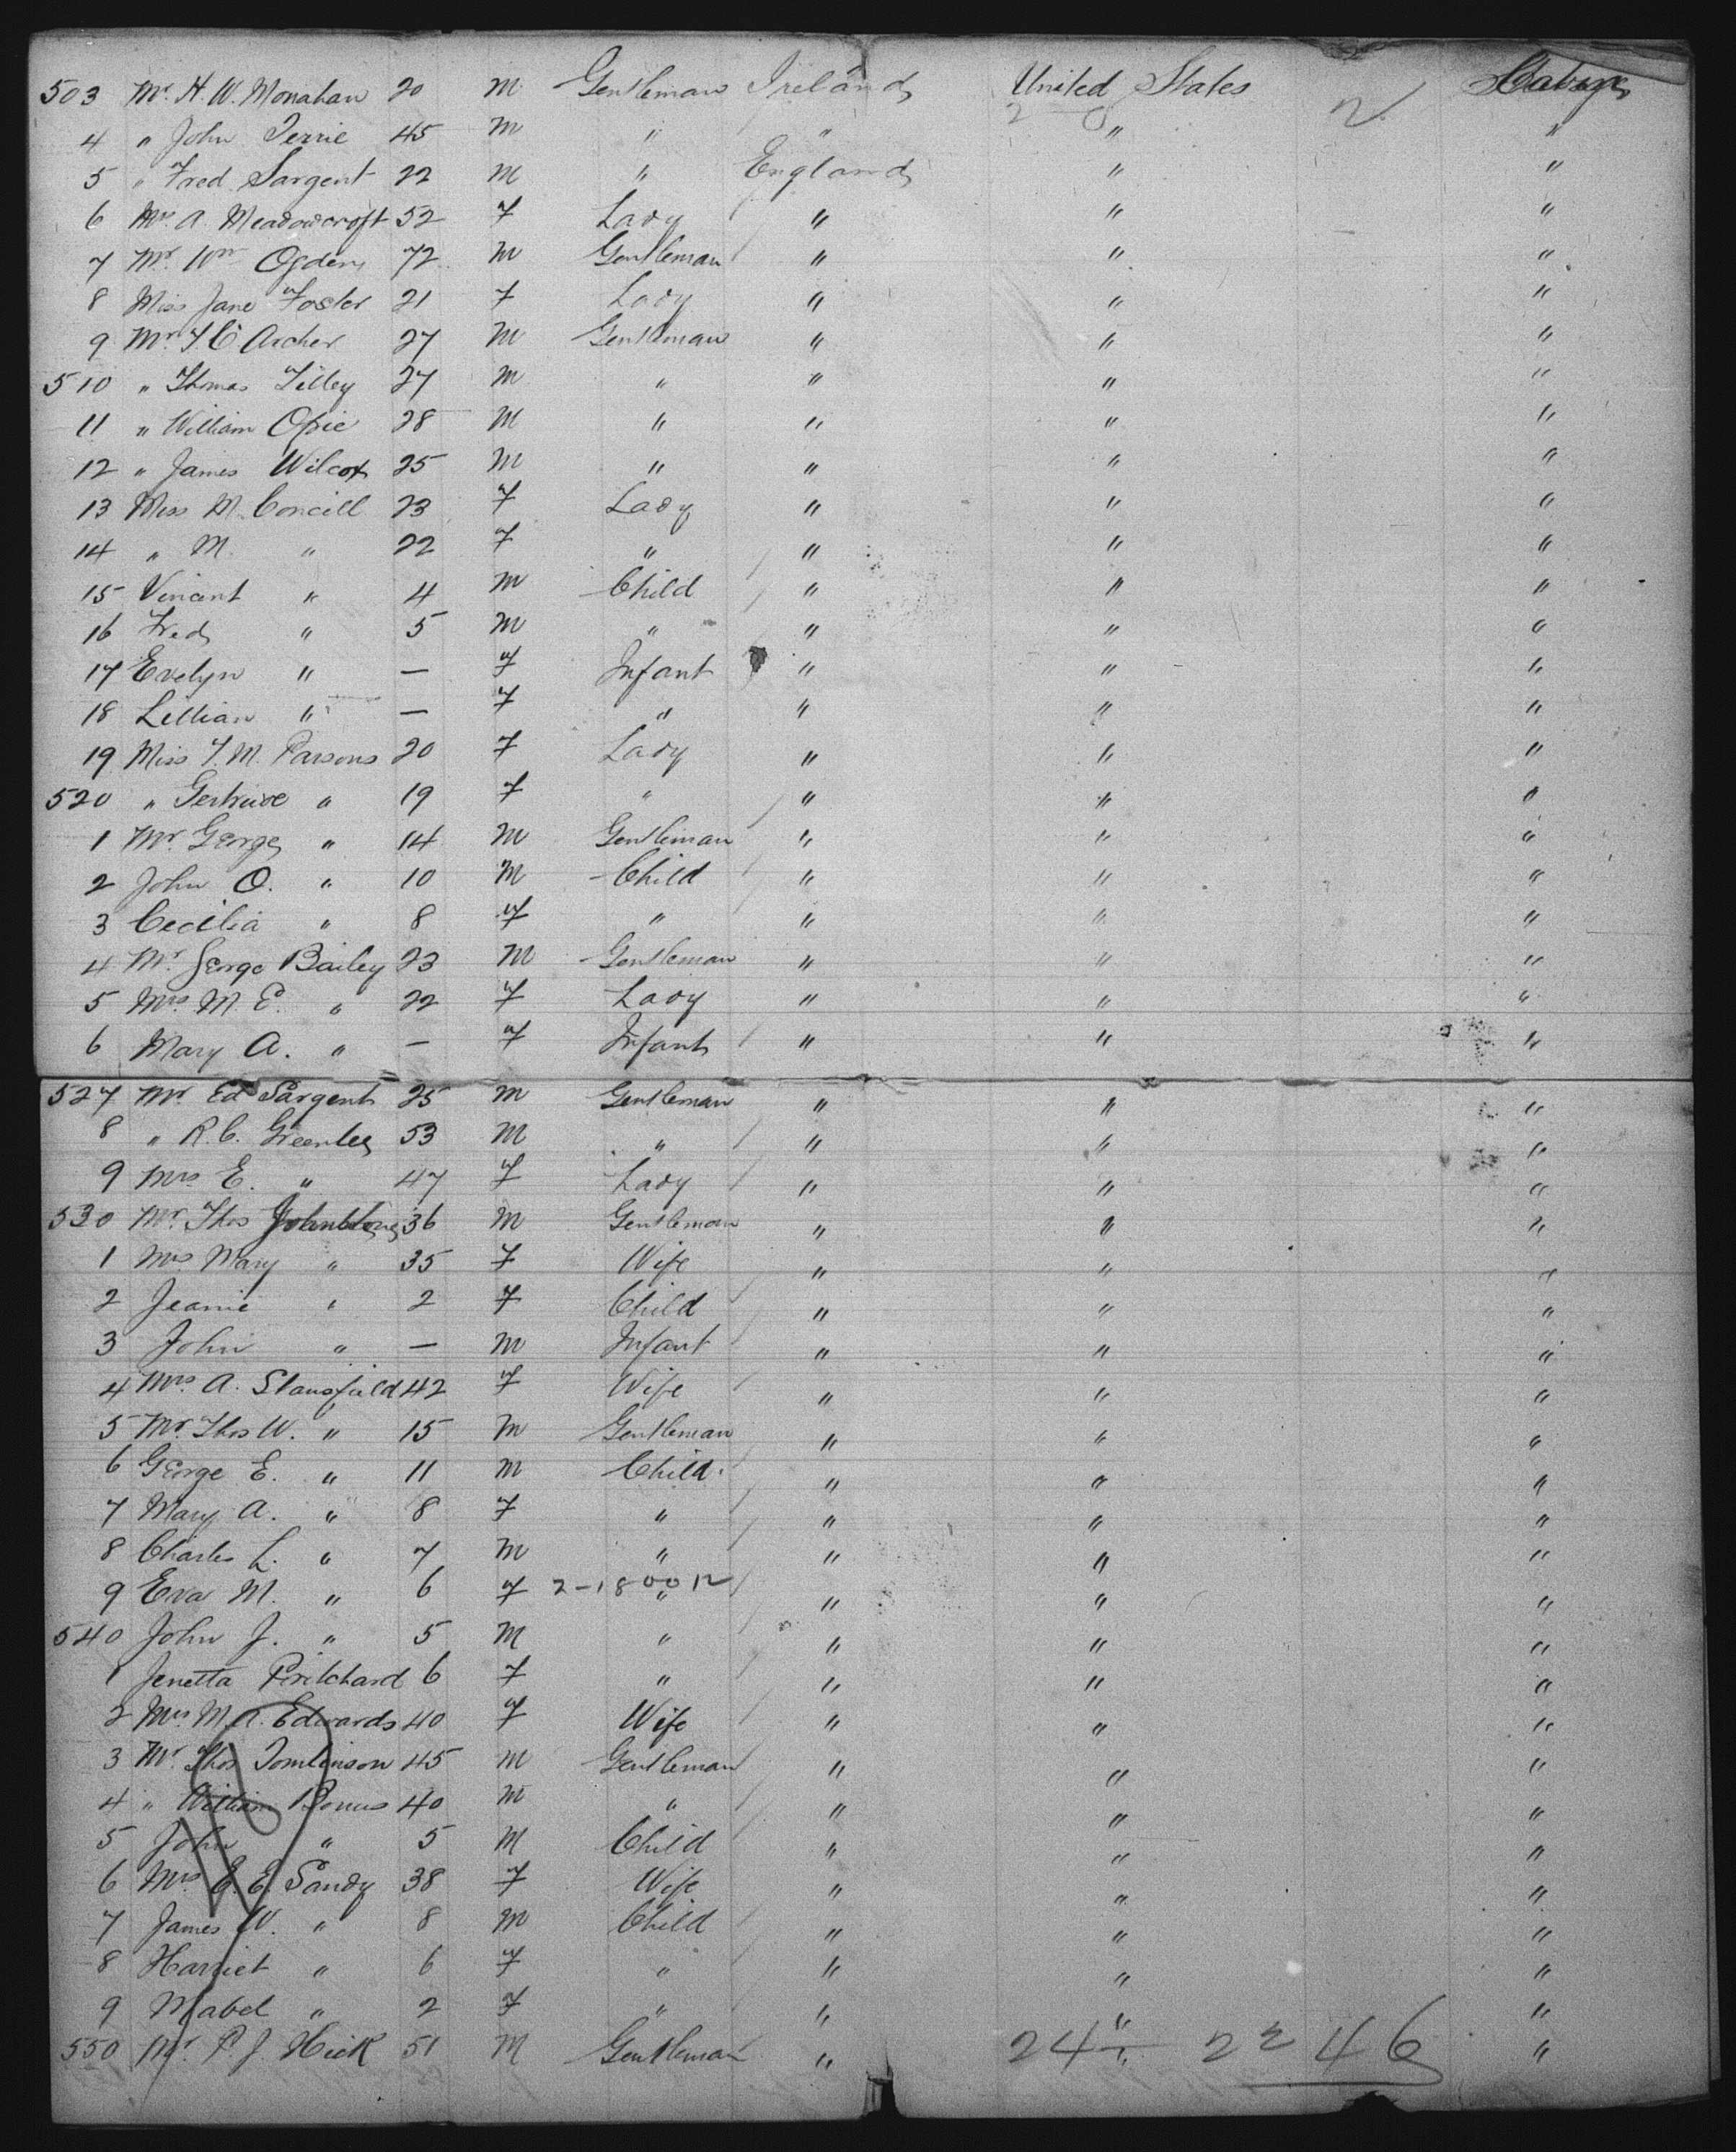 503 Mr. H. W. Monahan 20 m Gentleman Ireland United States
4 " John 45 m " " " "
5 " Fred Sargent 22 m " England " "
6 Mrs. A. Meadowcroft 52 F Lady " " "
7 Mr. Wm Ogden 72 m Gentleman " " "
8 Miss Jane Foster 21 F Lady " " "
9 Mr. Archer 27 m Gentleman " " "
510 " Thomas Tilley 27 m " " " "
11 " William Opie 28 m " " " "
12 " James Wilcox 25 m " " " "
13 Miss M. 23 F Lady " " "
14 " M. " 22 F " " " "
15 Vincent " 4 m Child " " "
16 Fred " 5 m " " " "
17 Evelyn " — F Infant " " "
18 Lillian " — F " " " "
19 Miss F. M. Parsons 20 F Lady " " "
520 " Gertrude " 19 F " " " "
1 Mr. George " 14 m Gentleman " " "
2 John O. " 10 m Child " " "
3 Cecilia " 8 F " " " "
4 Mr. George Bailey 23 m Gentleman " " "
5 Mrs. M. E. " 22 F Lady " " "
6 Mary A. " — F Infant " " "
527 Mr. Ed Sargent 25 m Gentleman " " "
8 " R. C. Greenlee 53 m " " " "
9 Mrs. E. " 47 F Lady " " "
530 Mr. Thos Johnstone 36 m Gentleman " " "
1 Mrs. Mary " 35 F Wife " " "
2 Jeanie " 2 F Child " " "
3 John " — m Infant " " "
4 Mrs. A. Stansfield 42 F Wife " " "
5 Mr. Thos W. " 15 m Gentleman " " "
6 George E. " 11 m Child " " "
7 Mary A. " 8 F " " " "
8 Charles L. " 7 m " " " "
9 Eva M. " 6 F " " " "
540 John J. " 5 m " " " "
1 Jenetta Pritchard 6 F " " " "
2 Mrs. M. A. Edwards 40 F Wife " " "
3 Mr. Thos Tomlinson 45 m Gentleman " " "
4 " William Bonus 40 m " " " "
5 John " 5 m Child " " "
6 Mrs. E. E. Sandy 38 F Wife " " "
7 James W. " 8 m Child " " "
8 Harriet " 6 F " " " "
9 Mabel " 2 F " " " "
550 Mr. P. J. Hick 51 m Gentleman " " "
24 22 46